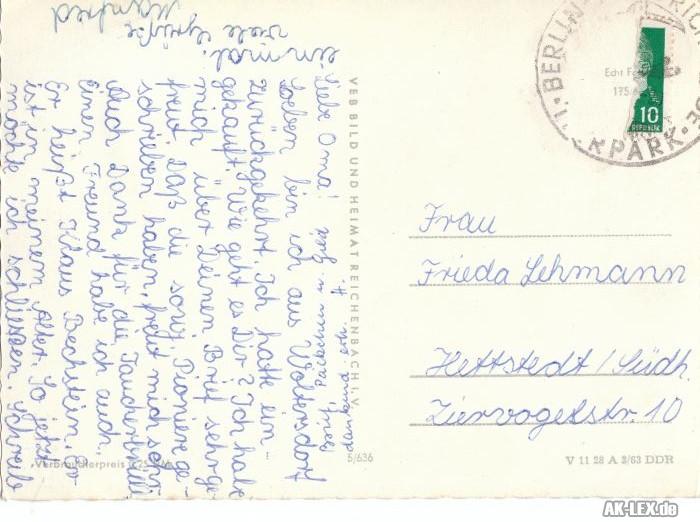 Liebe Oma!
Soeben bin ich aus Woltersdorf
zurückgekehrt. Ich hatte ein-
gekauft. Wie geht es Dir? Ich habe
mich über Deinen Brief sehr ge-
freut. Daß die sowj. Pioniere ge-
schrieben haben, freut mich sehr.
Auch Dank für die Taucherbrille.
Einen Freund habe ich auch.
Er heißt Klaus Bechstein. Er
ist in meinem Alter. So jetzt
möchte ich schliessen. Schreib
einmal.
viele Grüße
Manfred
Päckchen u.
dankend erh.
VEB BILD UND HEIMAT REICHENBACH i.V.
Verbraucherpreis
5/636
BERLIN
PARK
Echt
10
Frau
Frieda Lehmann
Hettstedt/Südh.
Ziervogelstr. 10
V 11 28 A 3/63 DDR
AK-LEX.de